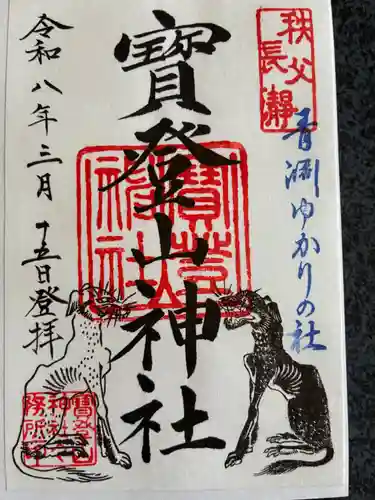 秩父
長瀞
青淵ゆかりの社
寶登山神社
寶登山
神社
令和八年三月十五日登拝
寶登山
神社
務所印